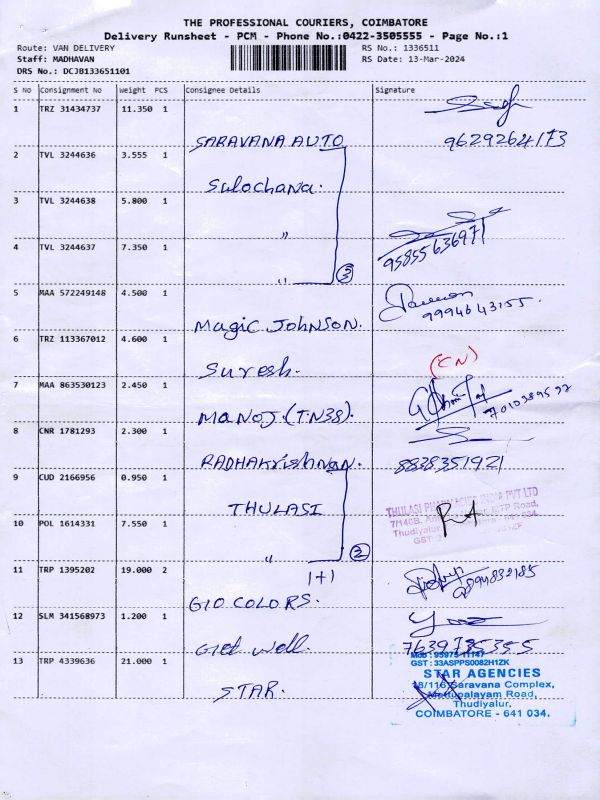 THE PROFESSIONAL COURIERS, COIMBATORE
Delivery Runsheet - PCM - Phone No.:0422-3505555 - Page No.:1
Route: VAN DELIVERY RS No.: 1336511
Staff: MADHAVAN RS Date: 13-Mar-2024
DRS No.: DCJB133651101
S No Consignment No Weight PCS Consignee Details Signature
1 TRZ 31434737 11.350 1
SARAVANA AUTO 9629264173
2 TVL 3244636 3.555 1
Sulochana.
3 TVL 3244638 5.800 1
"
4 TVL 3244637 7.350 1 95855636971
" 3
5 MAA 572249148 4.500 1
Magic Johnson. 9994643155.
6 TRZ 113367012 4.600 1
Suresh. (CN)
7 MAA 863530123 2.450 1
Manoj. (TN38).
8 CNR 1781293 2.300 1
RADHAKrishnan. 8838351921
9 CUD 2166956 0.950 1
THULASI THULASI PHARMACIES INDIA PVT LTD
10 POL 1614331 7.550 1 Thudiyalur
" 2
11 TRP 1395202 19.000 2 1+1
GIO COLORS.
12 SLM 341568973 1.200 1
Get Well. 7639735355
13 TRP 4339636 21.000 1
GST : 33ASPPS0082H1ZK
STAR. STAR AGENCIES
18/116 Saravana Complex,
Mettupalayam Road,
Thudiyalur,
COIMBATORE - 641 034.